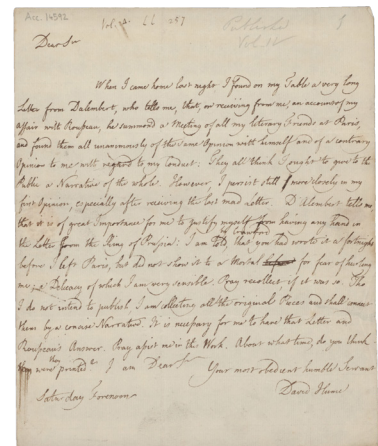 Acc. 14592
Vol. 4. LL 257
Published
Vol. II
Dear Sir
When I came home last night I found on my Table a very long
Letter from Dalembert, who tells me, that, on receiving from me, an account of my
affair with Rousseau, he summond a Meeting of all my literary Friends at Paris,
and found them all unanimously of the same Opinion with himself and of a contrary
Opinion to me with regard to my Conduct: They all think I ought to give to the
Public a Narrative of the whole. However, I persist still more closely in my
first Opinion, especially after receiving the last mad Letter. D'Alembert tells me
that it is of great Importance for me to justify myself from having any hand in
the Letter from the King of Prussia: I am told by Crawford that you had wrote it a fortnight
before I left Paris, but did not show it to a Mortal for fear of hurting
me; a Delicacy of which I am very sensible. Pray recollect if it was so. Tho
I do not intend to publish I am collecting all the original Pieces and shall connect
them by a concise Narrative. It is necessary for me to have that Letter and
Rousseau's Answer. Pray assist me in this Work. About what time, do you think
were they printed? I am Dear Sir
Your most obedient humble Servant
Saturday Forenoon David Hume